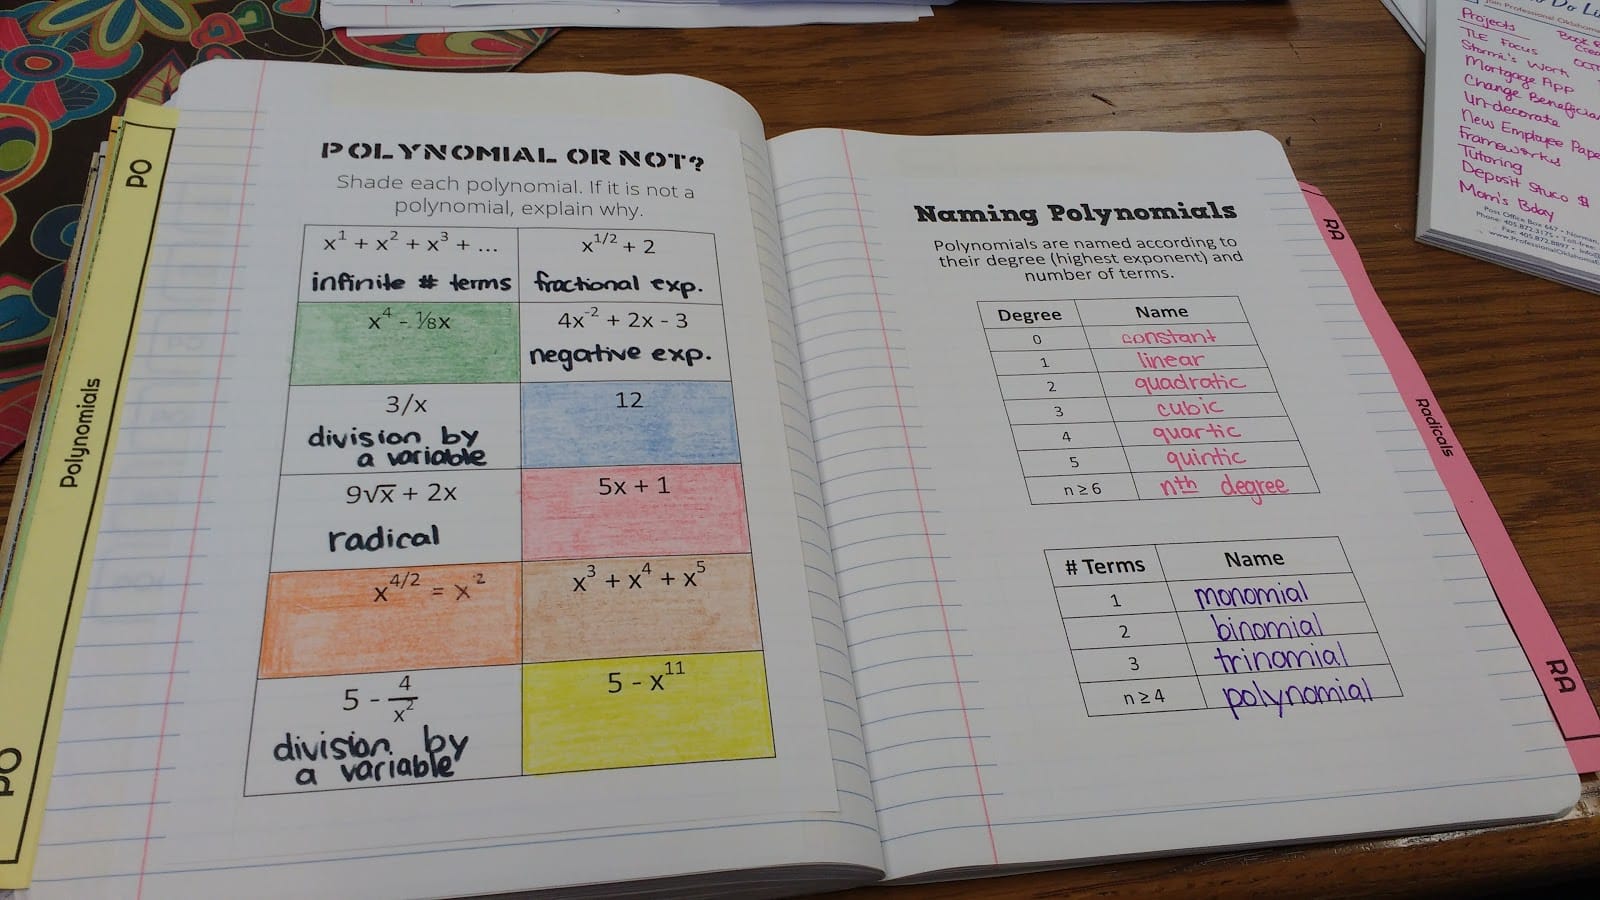 PO
Polynomials
PO
POLYNOMIAL OR NOT?
Shade each polynomial. If it is not a
polynomial, explain why.
x¹ + x² + x³ + ...
infinite # terms
x^1/2 + 2
fractional exp.
x⁴ - ⅛x
4x⁻² + 2x - 3
negative exp.
3/x
division by
a variable
12
9√x + 2x
radical
5x + 1
x^4/2 = x²
x³ + x⁴ + x⁵
5 - 4/x²
division by
a variable
5 - x¹¹
Naming Polynomials
Polynomials are named according to
their degree (highest exponent) and
number of terms.
Degree Name
0 constant
1 linear
2 quadratic
3 cubic
4 quartic
5 quintic
n ≥ 6 nth degree
# Terms Name
1 monomial
2 binomial
3 trinomial
n ≥ 4 polynomial
RA
Radicals
RA
Join Professional Oklahoma
Projects
TLE Focus
Stormi's Work
Mortgage App
Change Beneficia
Un-decorate
New Employee Pape
Frameworks
Tutoring
Deposit Stuco $
Mom's Bday
Book
Post Office Box 667 • Norman
Phone: 405.872.3175 • Toll-free:
Fax: 405.872.8897 •
www.ProfessionalOklahomaE